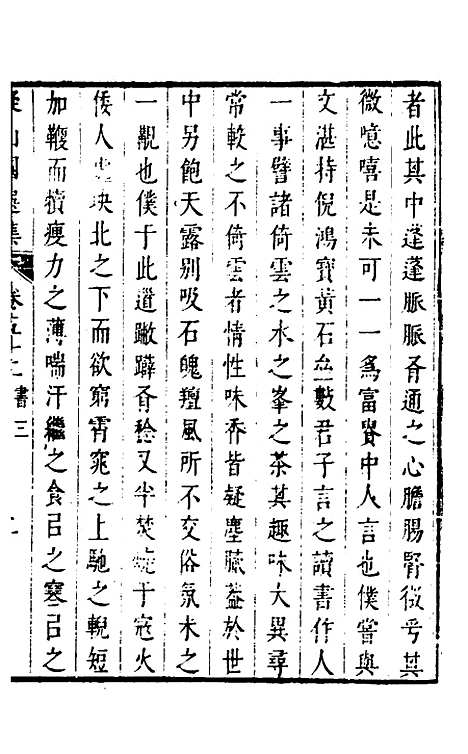 者此其中蓬蓬脈脈脊通之心膽腸腎微乎其
微噫嘻是未可一一爲富貴中人言也僕嘗與
文湛持倪鴻寶黄石𠫵數君子言之讀書作人
一事譬諸倚雲之木之峯之茶其趣味大異尋
常較之不倚雲者情性味香皆疑塵臟葢於世
中另飽天露别吸石魄羶風所不交俗氛未之
一覯也僕于此道蹴躃脊稔又半焚于寇火
倭人坱北之下而欲窮霄窕之上馳之輗短
加鞭而犢瘦力之薄喘汗繼之食吕之寒吕之
山園選集
卷五十二
書三